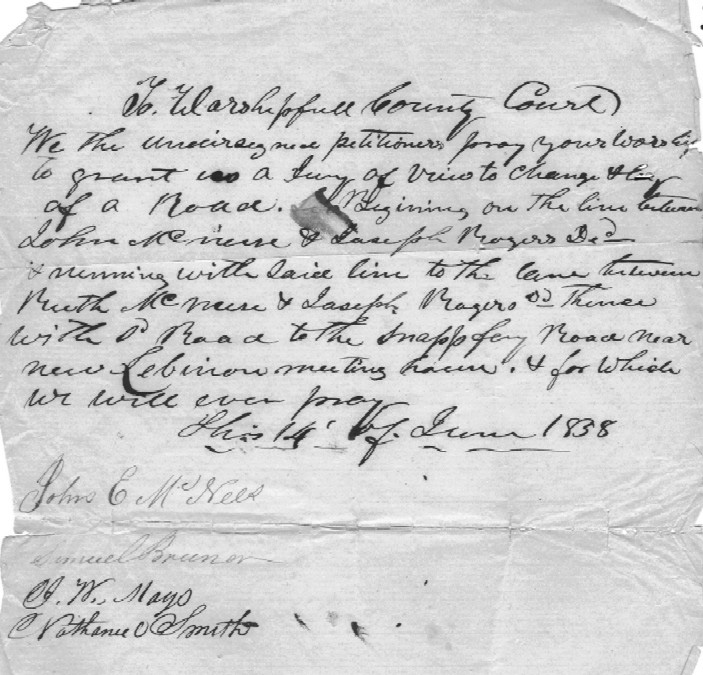 To. Warshipfull County Court
We the undersigned petitioners pray your Worship
to grant us a Jury of View to change & lay
of a Road. Begining on the line between
John McNeese & Joseph Rogers Decd
& running with said line to the lane between
Ruth McNeese & Joseph Rogers Dd Thence
with sd Road to the Snapp fery Road near
new Lebinon meeting house. & for which
we will ever pray
This 14' of. June 1838
John E McNees
Samuel Bruner
J. W. Mays
Nathaniel Smith